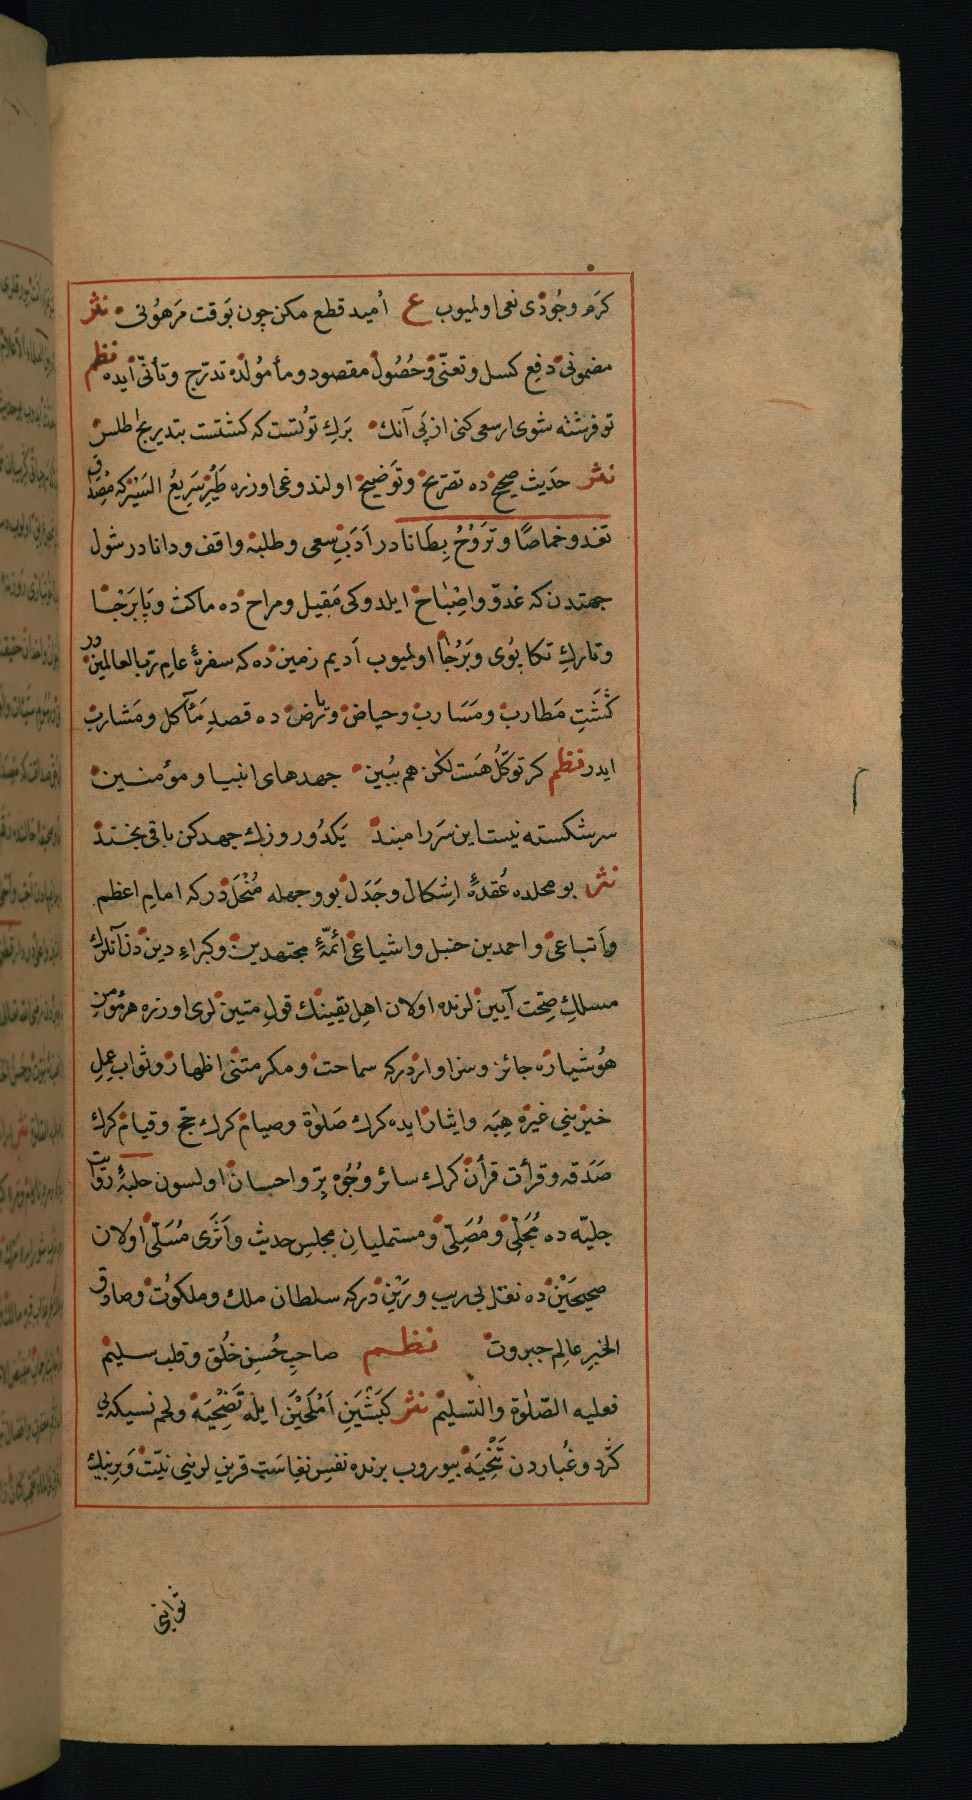 كرم وجودى نعى اولميوب ع اميد قطع مكن چون بوقت مرهونى نثر
مضمونى دفع كسل وتعنّى وحصول مقصود ومأموُلده تدرّج وتأنّى ايده نظم
تو فرشته شوى ار سعى كنى از پى آنك برك توُتست كه كشتست بتدريج اطلس
نثر حديث صحيح ده تصريح وتوضيح اولندوغى اوزره طير سريع السير كه مصداق
تغدو خماصًا وتروُحُ بِطانا در ادب سعى وطلبه واقف ودانا در شول
جهتدن كه غدوّ واصباح ايلدوكى مقيل ومراح ده ماكث وپابرجا
وتارك تكاپوى وبرجا اولميوب اديم زمين ده كه سفرهٔ عام ربّ العالمين در
كشت مطارب ومسارب وحياض ورياض ده قصد مآكل ومشارب
ايدر نظم كر توكّل هست لكن هم ببين جهدهاى انبيا ومؤمنين
سر شكسته نيست اين سر را مبند يكدو روزك جهد كن باقى بخند
نثر بو محلده عُقدهٔ اشكال وجدل بو وجهله مُنحَل در كه امام اعظم
واتباعى واحمد بن حنبل واشياعى ائمّهٔ مجتهدين وكبراء دين دن آنلرك
مسلك صحّت آيين لرنده اولان اهل يقينك قول متين لرى اوزره هر مؤمن
هوُشياره جائز وسزاواردر كه سماحت ومكرمتنى اظهار وثواب عمل
خيرينى غيره هِبَه وايثار ايده كرك صلوٰة وصيام كرك حجّ وقيام كرك
صَدَقه وقرأت قرآن كرك سائر وُجُوه برّ واحسان اولسون حلبهٔ رواة
جليّه ده مُجَلّى ومُصَلّى ومستمليان مجلس حديث واثرى مُسَلّى اولان
صحيحَيْن ده نقل بى ريب ورين در كه سلطان ملك وملكوُت وصادق
الخبر عالم جبروت نظم صاحب حُسن خُلق وقلب سليم
فعليه الصّلوٰة والتسليم نثر كبشَين اَملَحَين ايله تَضحِيَه ولحم نسيكه يى
كرد وغُباردن تنحيَه بيوروب برنده نفس نفاست قرين لرينى نيّت وبرينك
ثوابنى